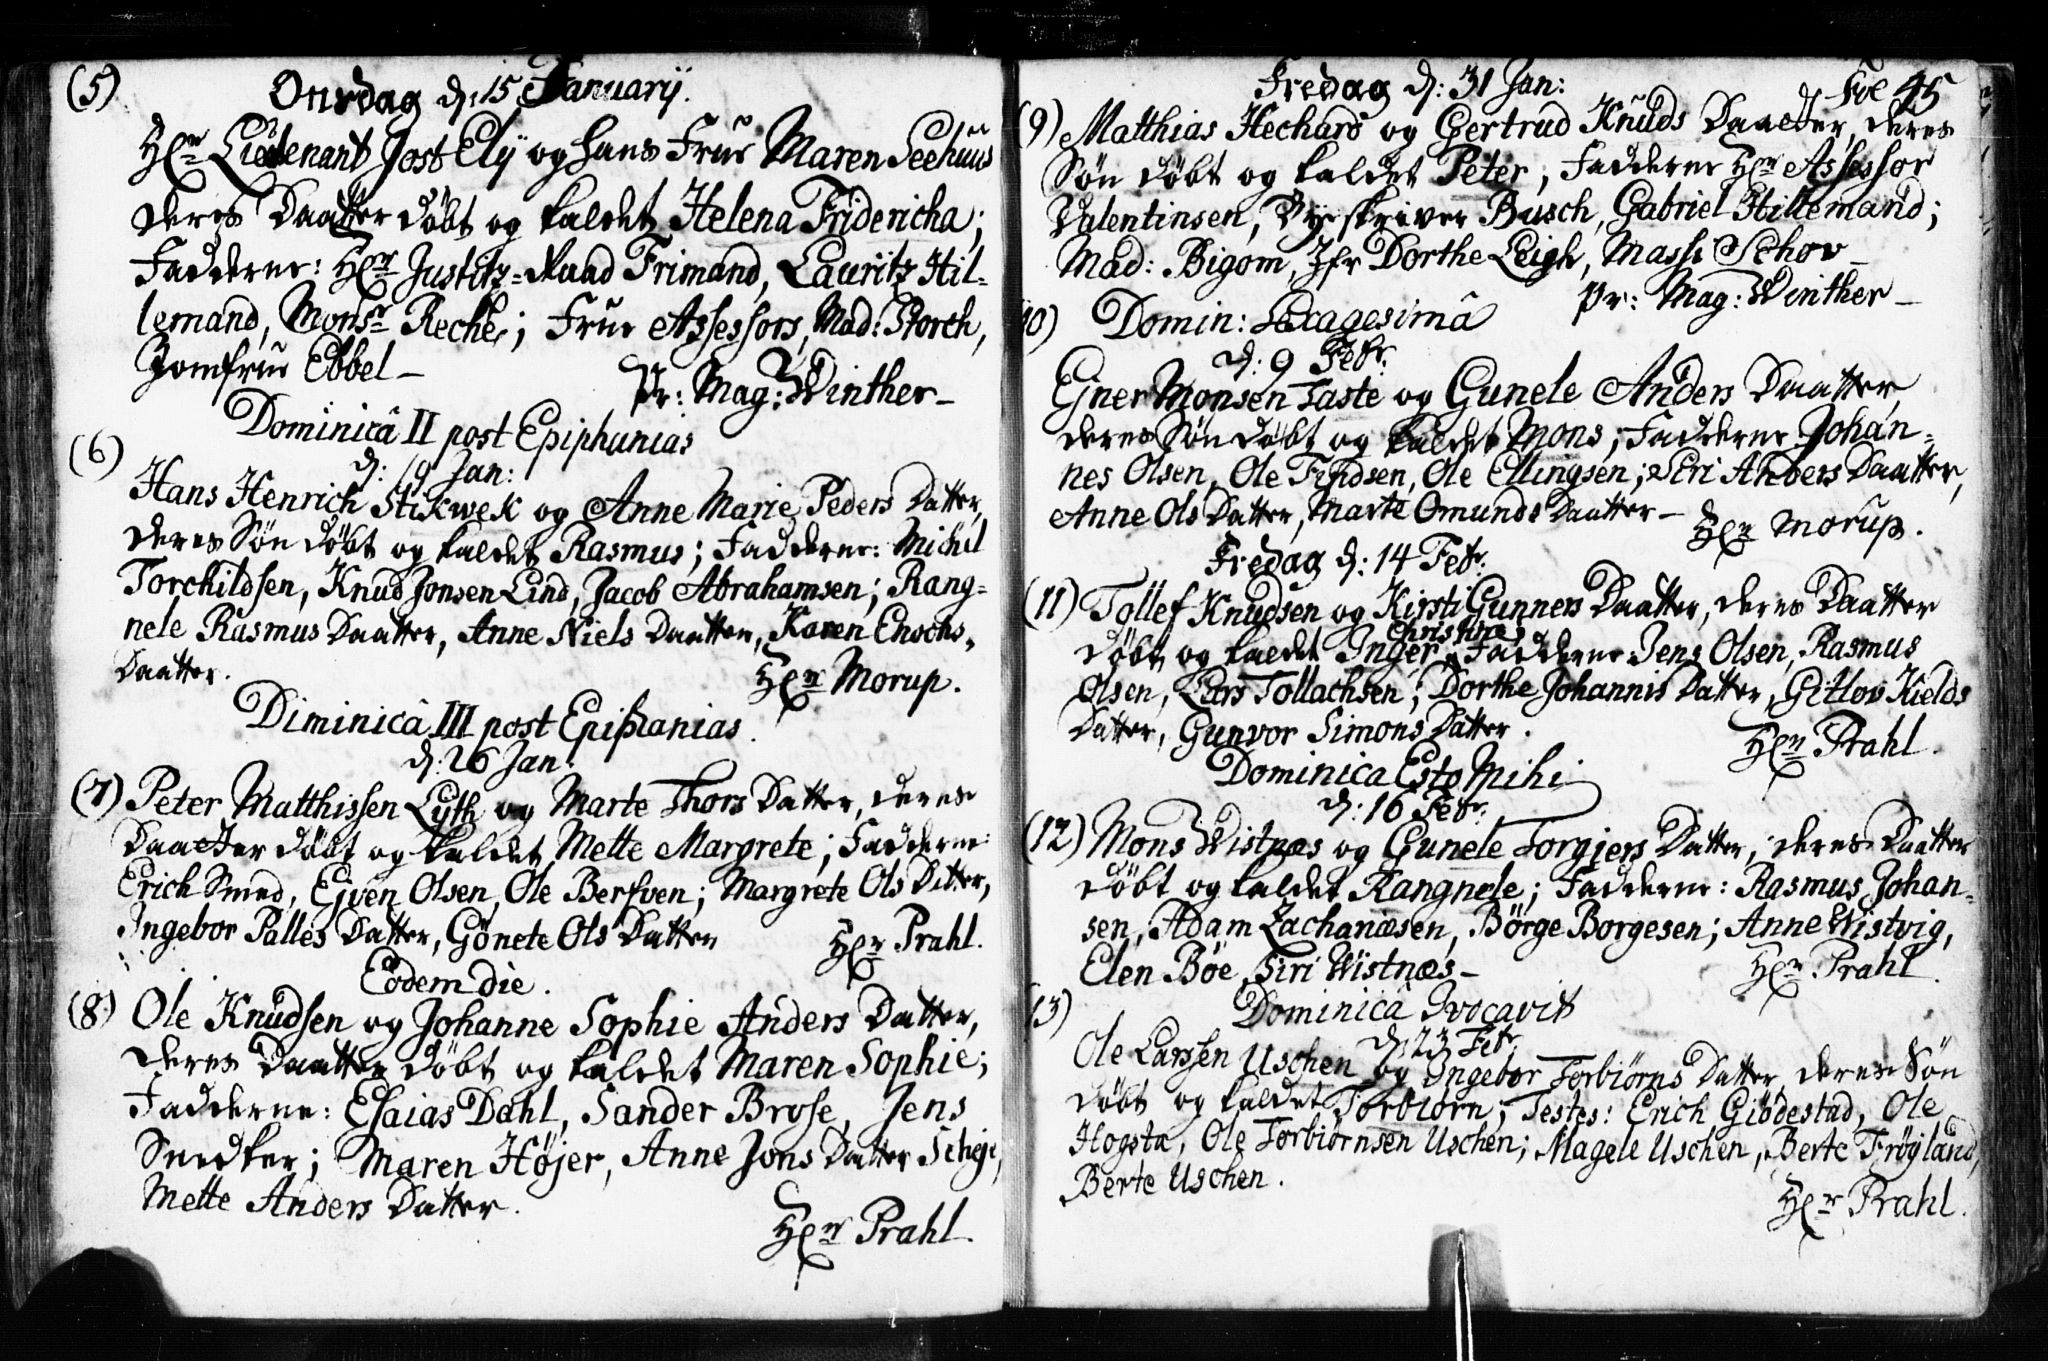 (5) Onsdag d: 15 Januarij.
Hr Lieutenant Jost Elÿ og hans Frue Maren Seehuus
deres Daatter døbt og kaldet Helena Friderica;
Fadderne: Hr Justitz-Raad Frimand, Lauritz Hil-
lemand, Monsr Reche; Frue Assessors, Mad: Storch,
Jomfrue Ebbel –
Pr: Mag: Winther –
Dominicâ II post Epiphanias
(6) d: 19 Jan:
Hans Henrich Stikwek og Anne Marie Peders Datter,
deres Søn døbt og kaldet Rasmus; Fadderne: Michil
Torchildsen, Knud Jonsen Lind, Jacob Abrahamsen; Rang-
nele Rasmus Daatter, Anne Niels Daatter, Karen Enochs-
Daatter.
Hr Morup.
Diminicâ III post Epiphanias.
d: 26 Jan:
(7) Peter Matthissen Lyth og Marte Thors Datter, deres
Daatter døbt og kaldet Mette Margrete; Fadderne:
Erich Smed, Ejven Olsen, Ole Bersven; Margrete Ols Datter,
Ingebor Palles Datter, Gønete Ols Datter
Hr Prahl.
Eodem die.
(8) Ole Knudsen og Johanne Sophie Anders Datter,
deres Daatter døbt og kaldet Maren Sophie;
Fadderne: Esaias Dahl, Sander Brose, Jens
Snedker; Maren Højer, Anne Jons Datter Scheje,
Mette Anders Datter.
Hr Prahl.
Fredag d: 31 Jan: Fol 45
(9) Matthias Hechard og Gertrud Knuds Daatter, deres
Søn døbt og kaldet Peter; Fadderne Hr Assessor
Valentinsen, Byeskriver Busch, Gabriel Hillemand;
Mad: Bigom, Jfr Dorthe Leigh, Massi Schov –
Pr: Mag: Winther –
10) Domin: Sexagesimâ
d: 9 Febr.
Ejner Monsen Taste og Gunele Anders Daatter,
deres Søn døbt og kaldet Mons; Fadderne Johan-
nes Olsen, Ole Olle Ellingsen; Siri Anders Daatter,
Anne Ols Datter, Marte Omunds Daatter –
Hr Morup.
Fredag d: 14 Febr:
(11) Tollef Knudsen og Kirsti Gunners Daatter, deres Daatter
Christines
døbt og kaldet Inger, Fadderne: Jens Olsen, Rasmus
Olsen, Lars Tollachsen; Dorthe Johannis Datter, Gitlov Kields
Datter, Gunvor Simons Datter.
Hr Prahl.
Dominica Esto Mihi
d: 16 Febr:
(12) Mons Wistnæs og Gunele Torgjers Datter, deres Daatter
døbt og kaldet Rangnele; Fadderne: Rasmus Johan-
sen, Adam Zachariæsen, Børge Borgesen; Anne Wistvig,
Elen Bøe, Siri Wistnæs –
Hr Prahl.
13) Dominicâ Invocavit
d: 23 Febr.
Ole Larssen Uschen og Ingebor Torbiørns Datter, deres Søn
døbt og kaldet Torbiørn; Testes: Erich Giødestad, Ole
Hogsta, Ole Torbiørnsen Uschen; Magele Uschen, Berte Frøyland,
Berte Uschen.
Hr Prahl.